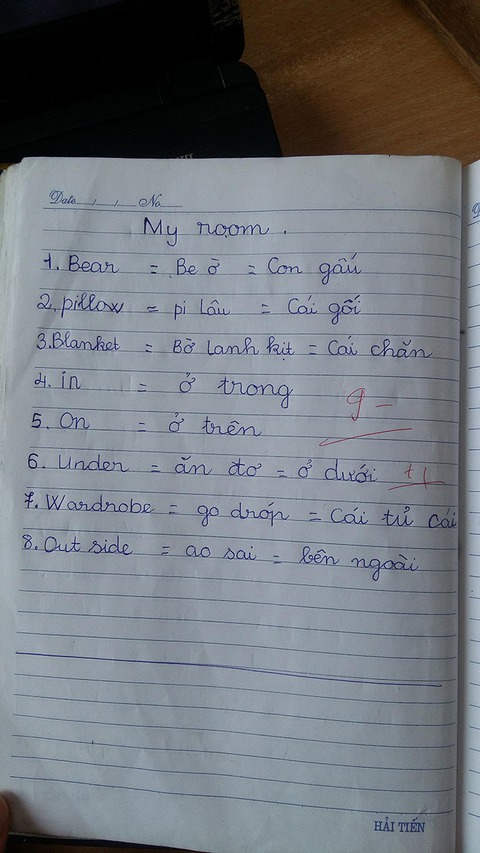 Date / / No
My room.
1. Bear = Be ở = Con gấu
2. pillow = pi lâu = Cái gối
3. Blanket = Bờ lanh kịt = Cái chăn
4. in = ở trong
5. On = ở trên
9-
6. Under = ăn đơ = ở dưới
7. Wardrobe = go dróp = Cái tủ cái
8. Out side = ao sai = bên ngoài
HẢI TIẾN